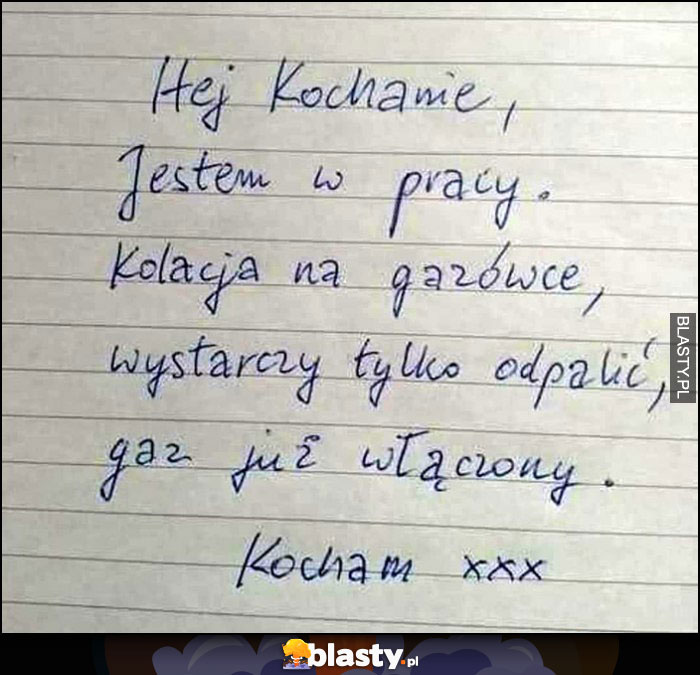 Hej Kochanie,
Jestem w pracy.
Kolacja na gazówce,
wystarczy tylko odpalić,
gaz już włączony.
Kocham xxx
BLASTY.PL
blasty.pl